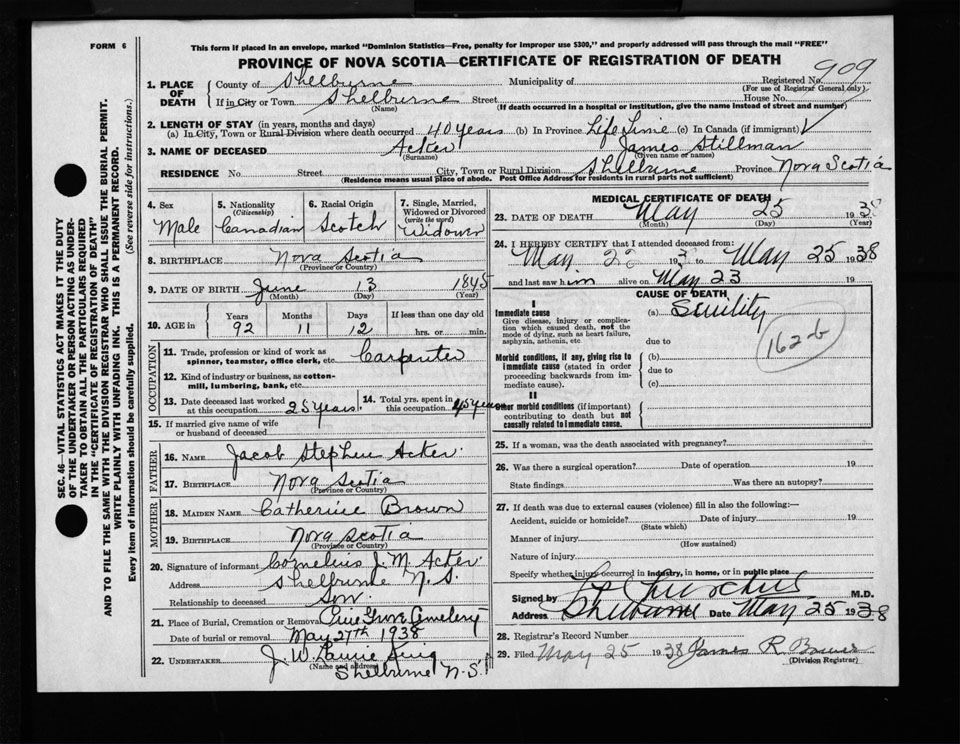 FORM 6
This form if placed in an envelope, marked "Dominion Statistics—Free, penalty for improper use $300," and properly addressed will pass through the mail "FREE"
PROVINCE OF NOVA SCOTIA—CERTIFICATE OF REGISTRATION OF DEATH
SEC. 46—VITAL STATISTICS ACT MAKES IT THE DUTY
OF THE UNDERTAKER OR PERSON ACTING AS UNDER-
TAKER TO OBTAIN ALL THE PARTICULARS REQUIRED
IN THE "CERTIFICATE OF REGISTRATION OF DEATH"
AND TO FILE THE SAME WITH THE DIVISION REGISTRAR WHO SHALL ISSUE THE BURIAL PERMIT.
WRITE PLAINLY WITH UNFADING INK. THIS IS A PERMANENT RECORD.
Every item of information should be carefully supplied. (See reverse side for instructions.)
1. PLACE OF DEATH
County of Shelburne Municipality of Registered No. 909
(For use of Registrar General only)
If in City or Town Shelburne Street House No.
(Name) (If death occurred in a hospital or institution, give the name instead of street and number)
2. LENGTH OF STAY (in years, months and days)
(a) In City, Town or Rural Division where death occurred 40 years (b) In Province Life Time (c) In Canada (if immigrant)
3. NAME OF DECEASED Acker James Stillman
(Surname) (Given name or names)
RESIDENCE No. Street City, Town or Rural Division Shelburne Province Nova Scotia
(Residence means usual place of abode. Post Office Address for residents in rural parts not sufficient)
4. Sex Male
5. Nationality (Citizenship) Canadian
6. Racial Origin Scotch
7. Single, Married, Widowed or Divorced (write the word) Widower
8. BIRTHPLACE Nova Scotia
(Province or Country)
9. DATE OF BIRTH June 13 1845
(Month) (Day) (Year)
10. AGE in Years 92 Months 11 Days 12 If less than one day old hrs. or min.
OCCUPATION
11. Trade, profession or kind of work as spinner, teamster, office clerk, etc. Carpenter
12. Kind of industry or business, as cotton-mill, lumbering, bank, etc.
13. Date deceased last worked at this occupation 25 years
14. Total yrs. spent in this occupation 45 years
15. If married give name of wife or husband of deceased
FATHER
16. NAME Jacob Stephen Acker
17. BIRTHPLACE Nova Scotia
(Province or Country)
MOTHER
18. MAIDEN NAME Catherine Brown
19. BIRTHPLACE Nova Scotia
(Province or Country)
20. Signature of informant Cornelius J. M. Acker
Address Shelburne N. S.
Relationship to deceased Son
21. Place of Burial, Cremation or Removal Pine Grove Cemetery
Date of burial or removal May 27th 1938
22. UNDERTAKER J. W.
(Name and address) Shelburne N.S.
MEDICAL CERTIFICATE OF DEATH
23. DATE OF DEATH May 25 1938
(Month) (Day) (Year)
24. I HEREBY CERTIFY that I attended deceased from:
May 193 to May 25 1938
and last saw him alive on May 23
CAUSE OF DEATH
I
Immediate cause (a) Senility
Give disease, injury or complication which caused death, not the mode of dying, such as heart failure, asphyxia, asthenia, etc
due to
162-b
Morbid conditions, if any, giving rise to immediate cause (stated in order proceeding backwards from immediate cause).
(b)
due to
(c)
II
Other morbid conditions (if important) contributing to death but not causally related to immediate cause.
25. If a woman, was the death associated with pregnancy?
26. Was there a surgical operation? Date of operation 19
State findings Was there an autopsy?
27. If death was due to external causes (violence) fill in also the following:—
Accident, suicide or homicide? Date of injury 19
(State which)
Manner of injury
(How sustained)
Nature of injury
Specify whether injury occurred in industry, in home, or in public place
Signed by Churchill M.D.
Address Shelburne Date May 25 1938
28. Registrar's Record Number
29. Filed May 25 1938 James R. Bower
(Division Registrar)